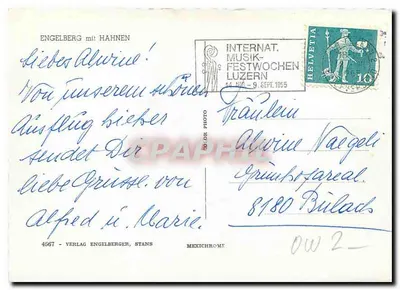 ENGELBERG mit HAHNEN
Liebes Alwine!
Von unserem schönen
Ausflug hieher
sendet Dir
liebe Grüsse von
Alfred u. Marie.
4967 - VERLAG ENGELBERGER, STANS
MEXICHROME
COLOR PHOTO
INTERNAT.
MUSIK-
FESTWOCHEN
LUZERN
- 9. SEPT. 1965
HELVETIA
10
Fräulein
Alwine Naegeli
8180 Bülach
OW 2-